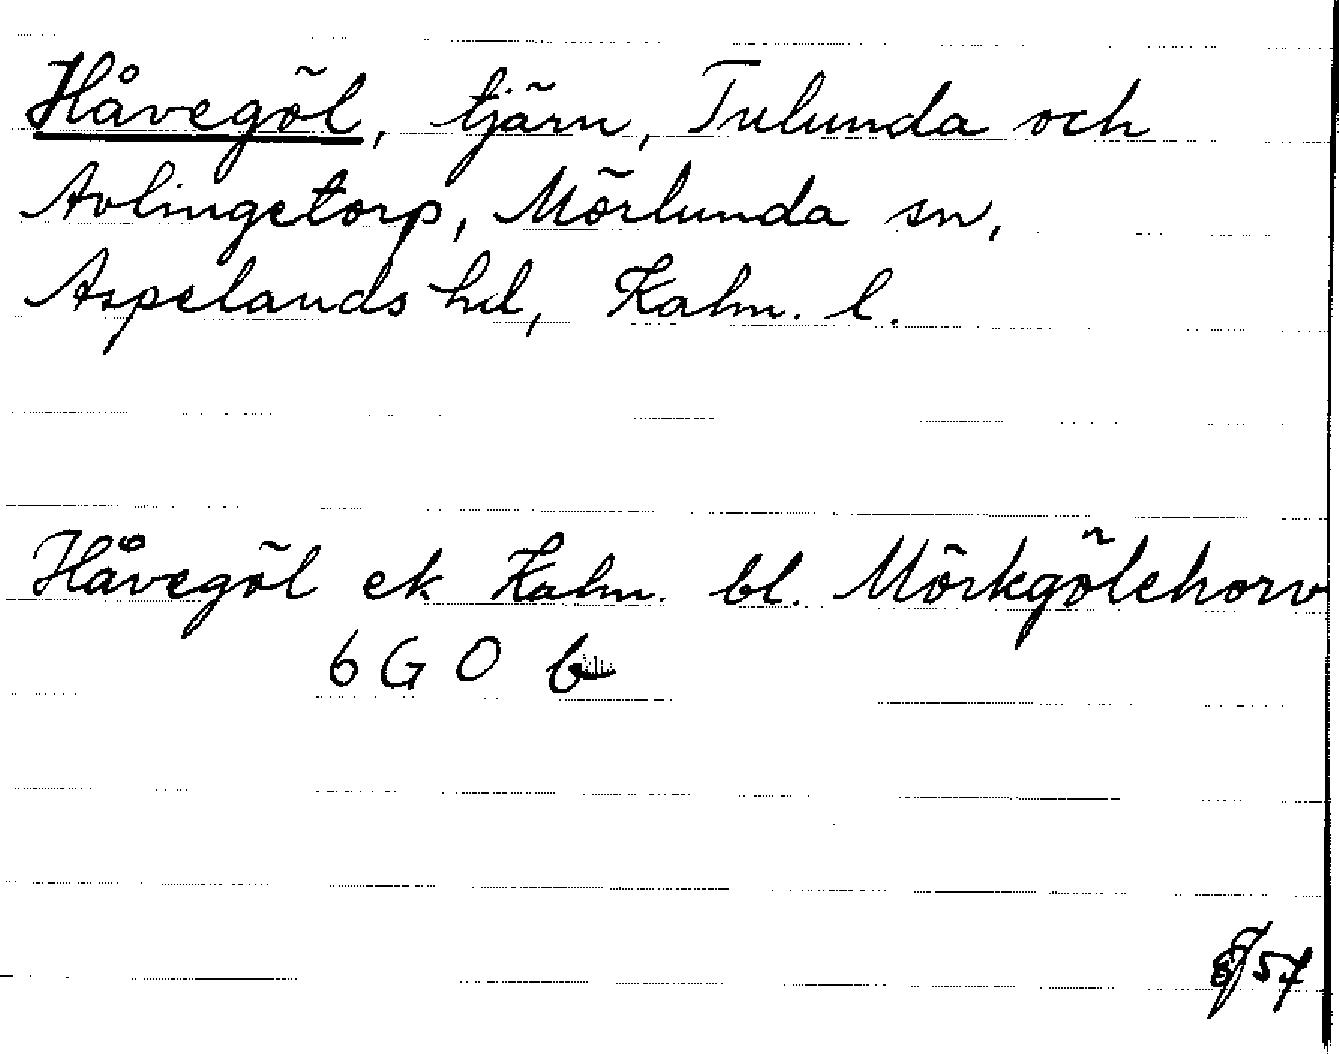 Håvegöl, tjärn, Tulunda och
Avlingetorp, Mörlunda sn,
Aspelands hd, Kalm. l.
Håvegöl ek Kalm. bl. Mörkgölehorv
6 G O b
57